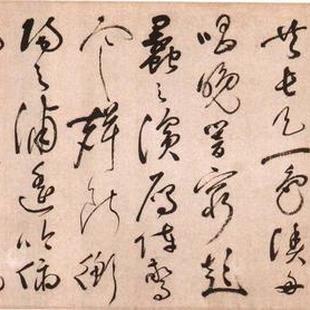 共長天一色漁舟
唱晚響窮彭
蠡之濱雁陣驚
寒聲斷衡
陽之浦遙吟俯